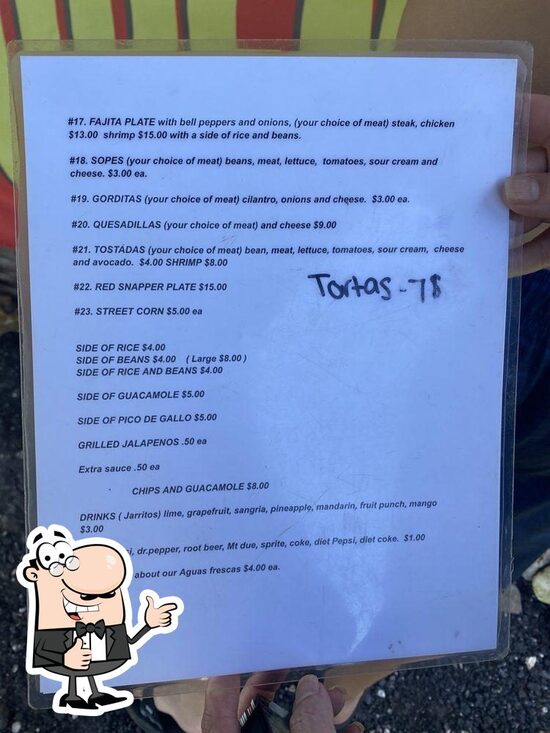 #17. FAJITA PLATE with bell peppers and onions, (your choice of meat) steak, chicken
$13.00 shrimp $15.00 with a side of rice and beans.
#18. SOPES (your choice of meat) beans, meat, lettuce, tomatoes, sour cream and
cheese. $3.00 ea.
#19. GORDITAS (your choice of meat) cilantro, onions and cheese. $3.00 ea.
#20. QUESADILLAS (your choice of meat) and cheese $9.00
#21. TOSTADAS (your choice of meat) bean, meat, lettuce, tomatoes, sour cream, cheese
and avocado. $4.00 SHRIMP $8.00
#22. RED SNAPPER PLATE $15.00
Tortas - 7$
#23. STREET CORN $5.00 ea
SIDE OF RICE $4.00
SIDE OF BEANS $4.00 ( Large $8.00 )
SIDE OF RICE AND BEANS $4.00
SIDE OF GUACAMOLE $5.00
SIDE OF PICO DE GALLO $5.00
GRILLED JALAPENOS .50 ea
Extra sauce .50 ea
CHIPS AND GUACAMOLE $8.00
DRINKS ( Jarritos) lime, grapefruit, sangria, pineapple, mandarin, fruit punch, mango
$3.00
dr.pepper, root beer, Mt due, sprite, coke, diet Pepsi, diet coke. $1.00
about our Aguas frescas $4.00 ea.